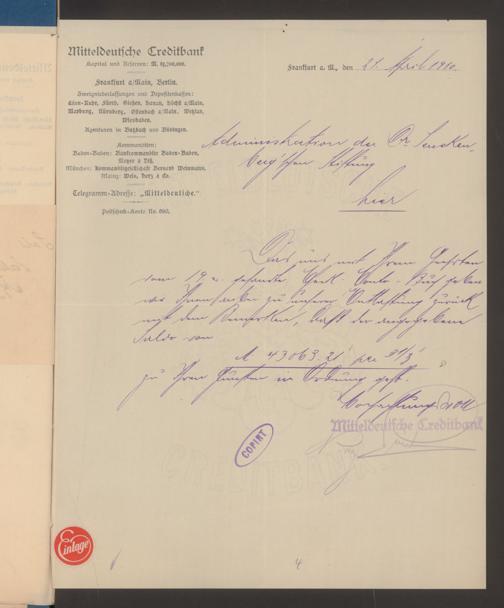 Mitteldeutsche Creditbank
Kapital und Reserven: M.
Frankfurt a/Main, Berlin.
Zweigniederlassungen und Depositenkassen:
Essen-Ruhr, Fürth, Gießen, Hanau, Höchst a/Main,
Marburg, Nürnberg, Offenbach a/Main, Wetzlar,
Wiesbaden.
Agenturen in Butzbach und Büdingen.
Kommanditen:
Baden-Baden: Bankkommandite Baden-Baden,
Meyer & Diß.
München: Kommanditgesellschaft Bernard Weinmann.
Mainz: Weis, Herz & Co.
Telegramm-Adresse: „Mitteldeutsche."
Postscheck-Konto No. 690.
Frankfurt a. M., den 21. April 1910.
Administration der Dr. Sencken-
berg'schen Stiftung
hier
Das uns mit Ihrem Geehrten
vom 19. gesandte Check Conto-Buch geben
wir Ihnen zu unserer Entlastung zurück
mit dem Bemerken, daß der angegebene
Saldo von
M 43063.21 per 31/3
zu Ihren Gunsten in Ordnung geht.
Hochachtungsvoll
Mitteldeutsche Creditbank
COPIRT
Einlage
4